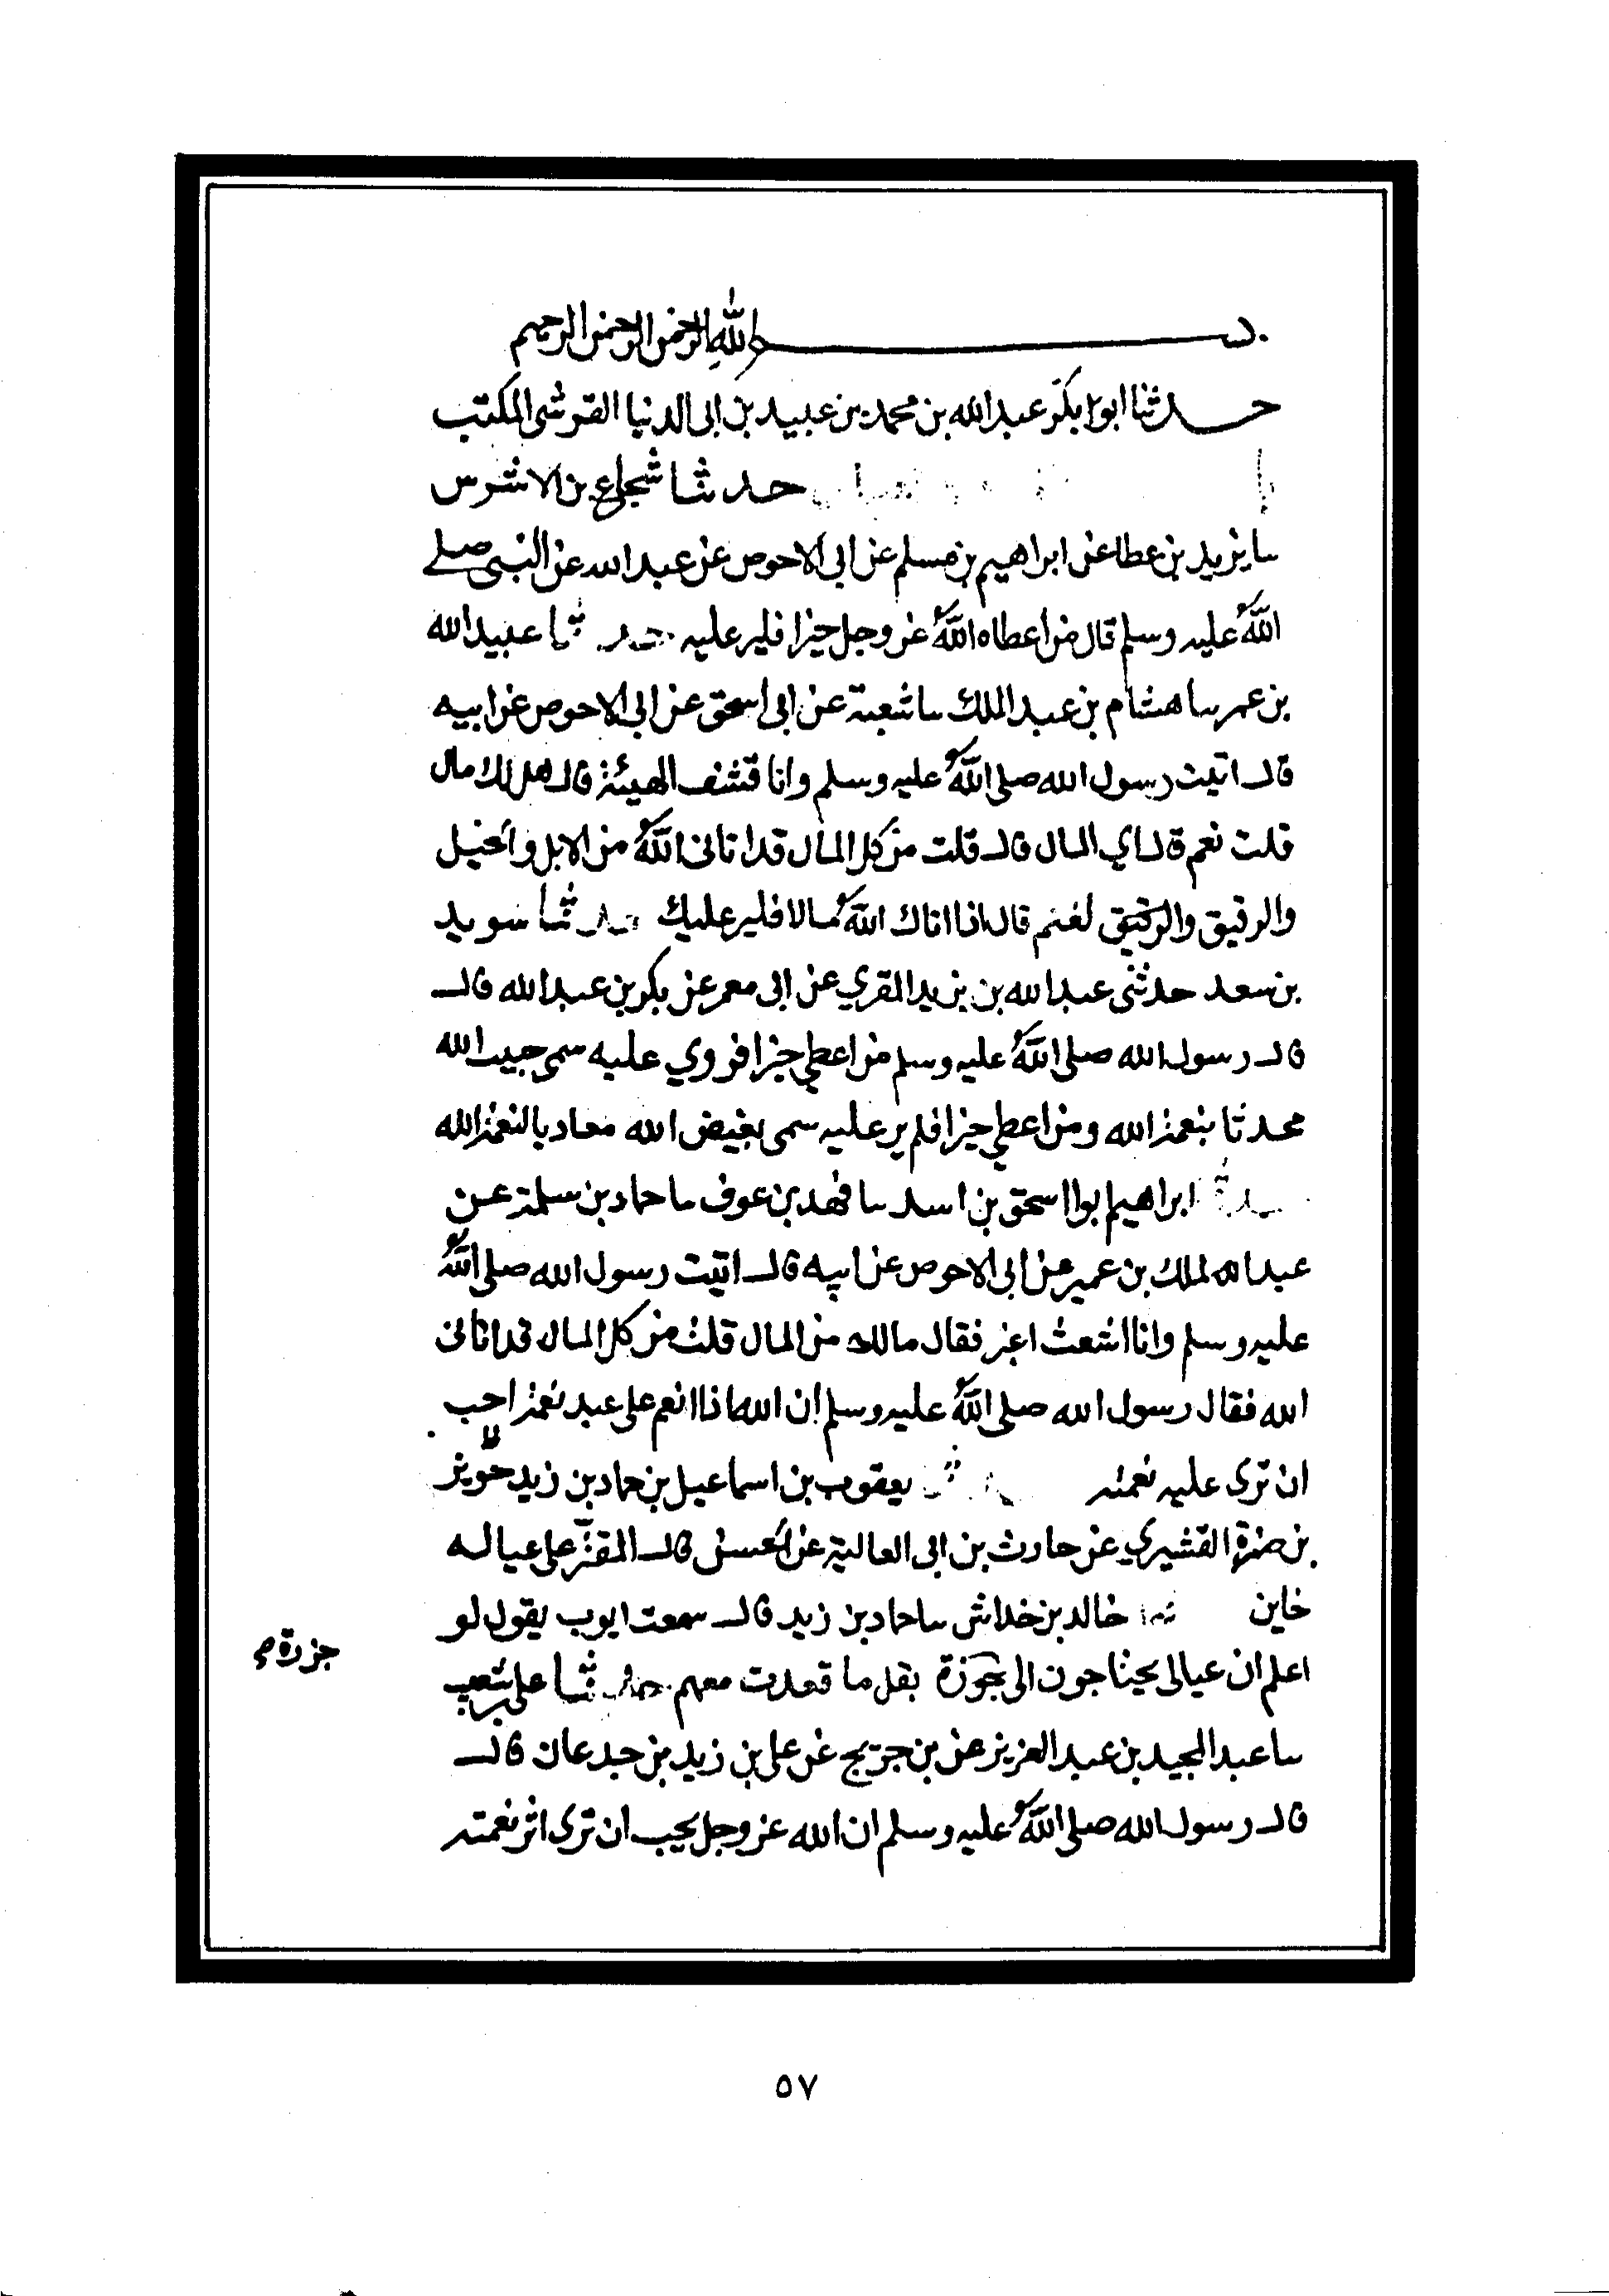 بسم الله الرحمن الرحمن الرحيم
حدثنا ابوا بكر عبد الله بن محمد بن عبيد بن ابى الدنيا القرشى المكتب
حدثنا شجاع بن الاشرس
سا يزيد بن عطا عن ابراهيم بن مسلم عن ابى الاحوص عن عبد الله عن النبى صلى
الله عليه وسلم قال من اعطاه الله عز وجل خيرا فلير عليه حدثنا عبيد الله
بن عمر سا هشام بن عبد الملك سا شعبة عن ابى اسحق عن ابى الاحوص عن ابيه
قال اتيت رسول الله صلى الله عليه وسلم وانا قشف الهيئة قال هل لك مال
قلت نعم قال اي المال قال قلت من كل المال قد اتانى الله من الابل والخيل
والرقيق والرقيق لغنم قال اذا اتاك الله مالا فلير عليك حدثنا سويد
بن سعد حدثنى عبد الله بن يزيد المقري عن ابى معمر عن بكر بن عبد الله قال
قال رسول الله صلى الله عليه وسلم من اعطي خيرا فروي عليه سمى حبيب الله
محدثا بنعمة الله ومن اعطي خيرا فلم ير عليه سمى بغيض الله معاديا لنعمة الله
ابراهيم ابوا اسحق بن اسد سا فهد بن عوف سا حماد بن سلمة عن
عبد الملك بن عمير عن ابى الاحوص عن ابيه قال اتيت رسول الله صلى الله
عليه وسلم وانا اشعث اغبر فقال مالك من المال قلت من كل المال قد اتانى
الله فقال رسول الله صلى الله عليه وسلم ان الله اذا انعم على عبد نعمة احب
ان ترى عليه نعمته يعقوب بن اسماعيل بن حماد بن زيد
بن القشيري عن حارث بن ابى العالية عن الحسن قال المقتر على عياله
خاين خالد بن خداش سا حماد بن زيد قال سمعت ايوب يقول لو
اعلم ان عيالى يحتاجون الى بقل ما قعدت معهم حدثنا على بن شعيب
جزرة ص
سا عبد المجيد بن عبد العزيز عن بن جريج عن على بن زيد بن جدعان قال
قال رسول الله صلى الله عليه وسلم ان الله عز وجل يحب ان ترى اثر نعمته
٥٧